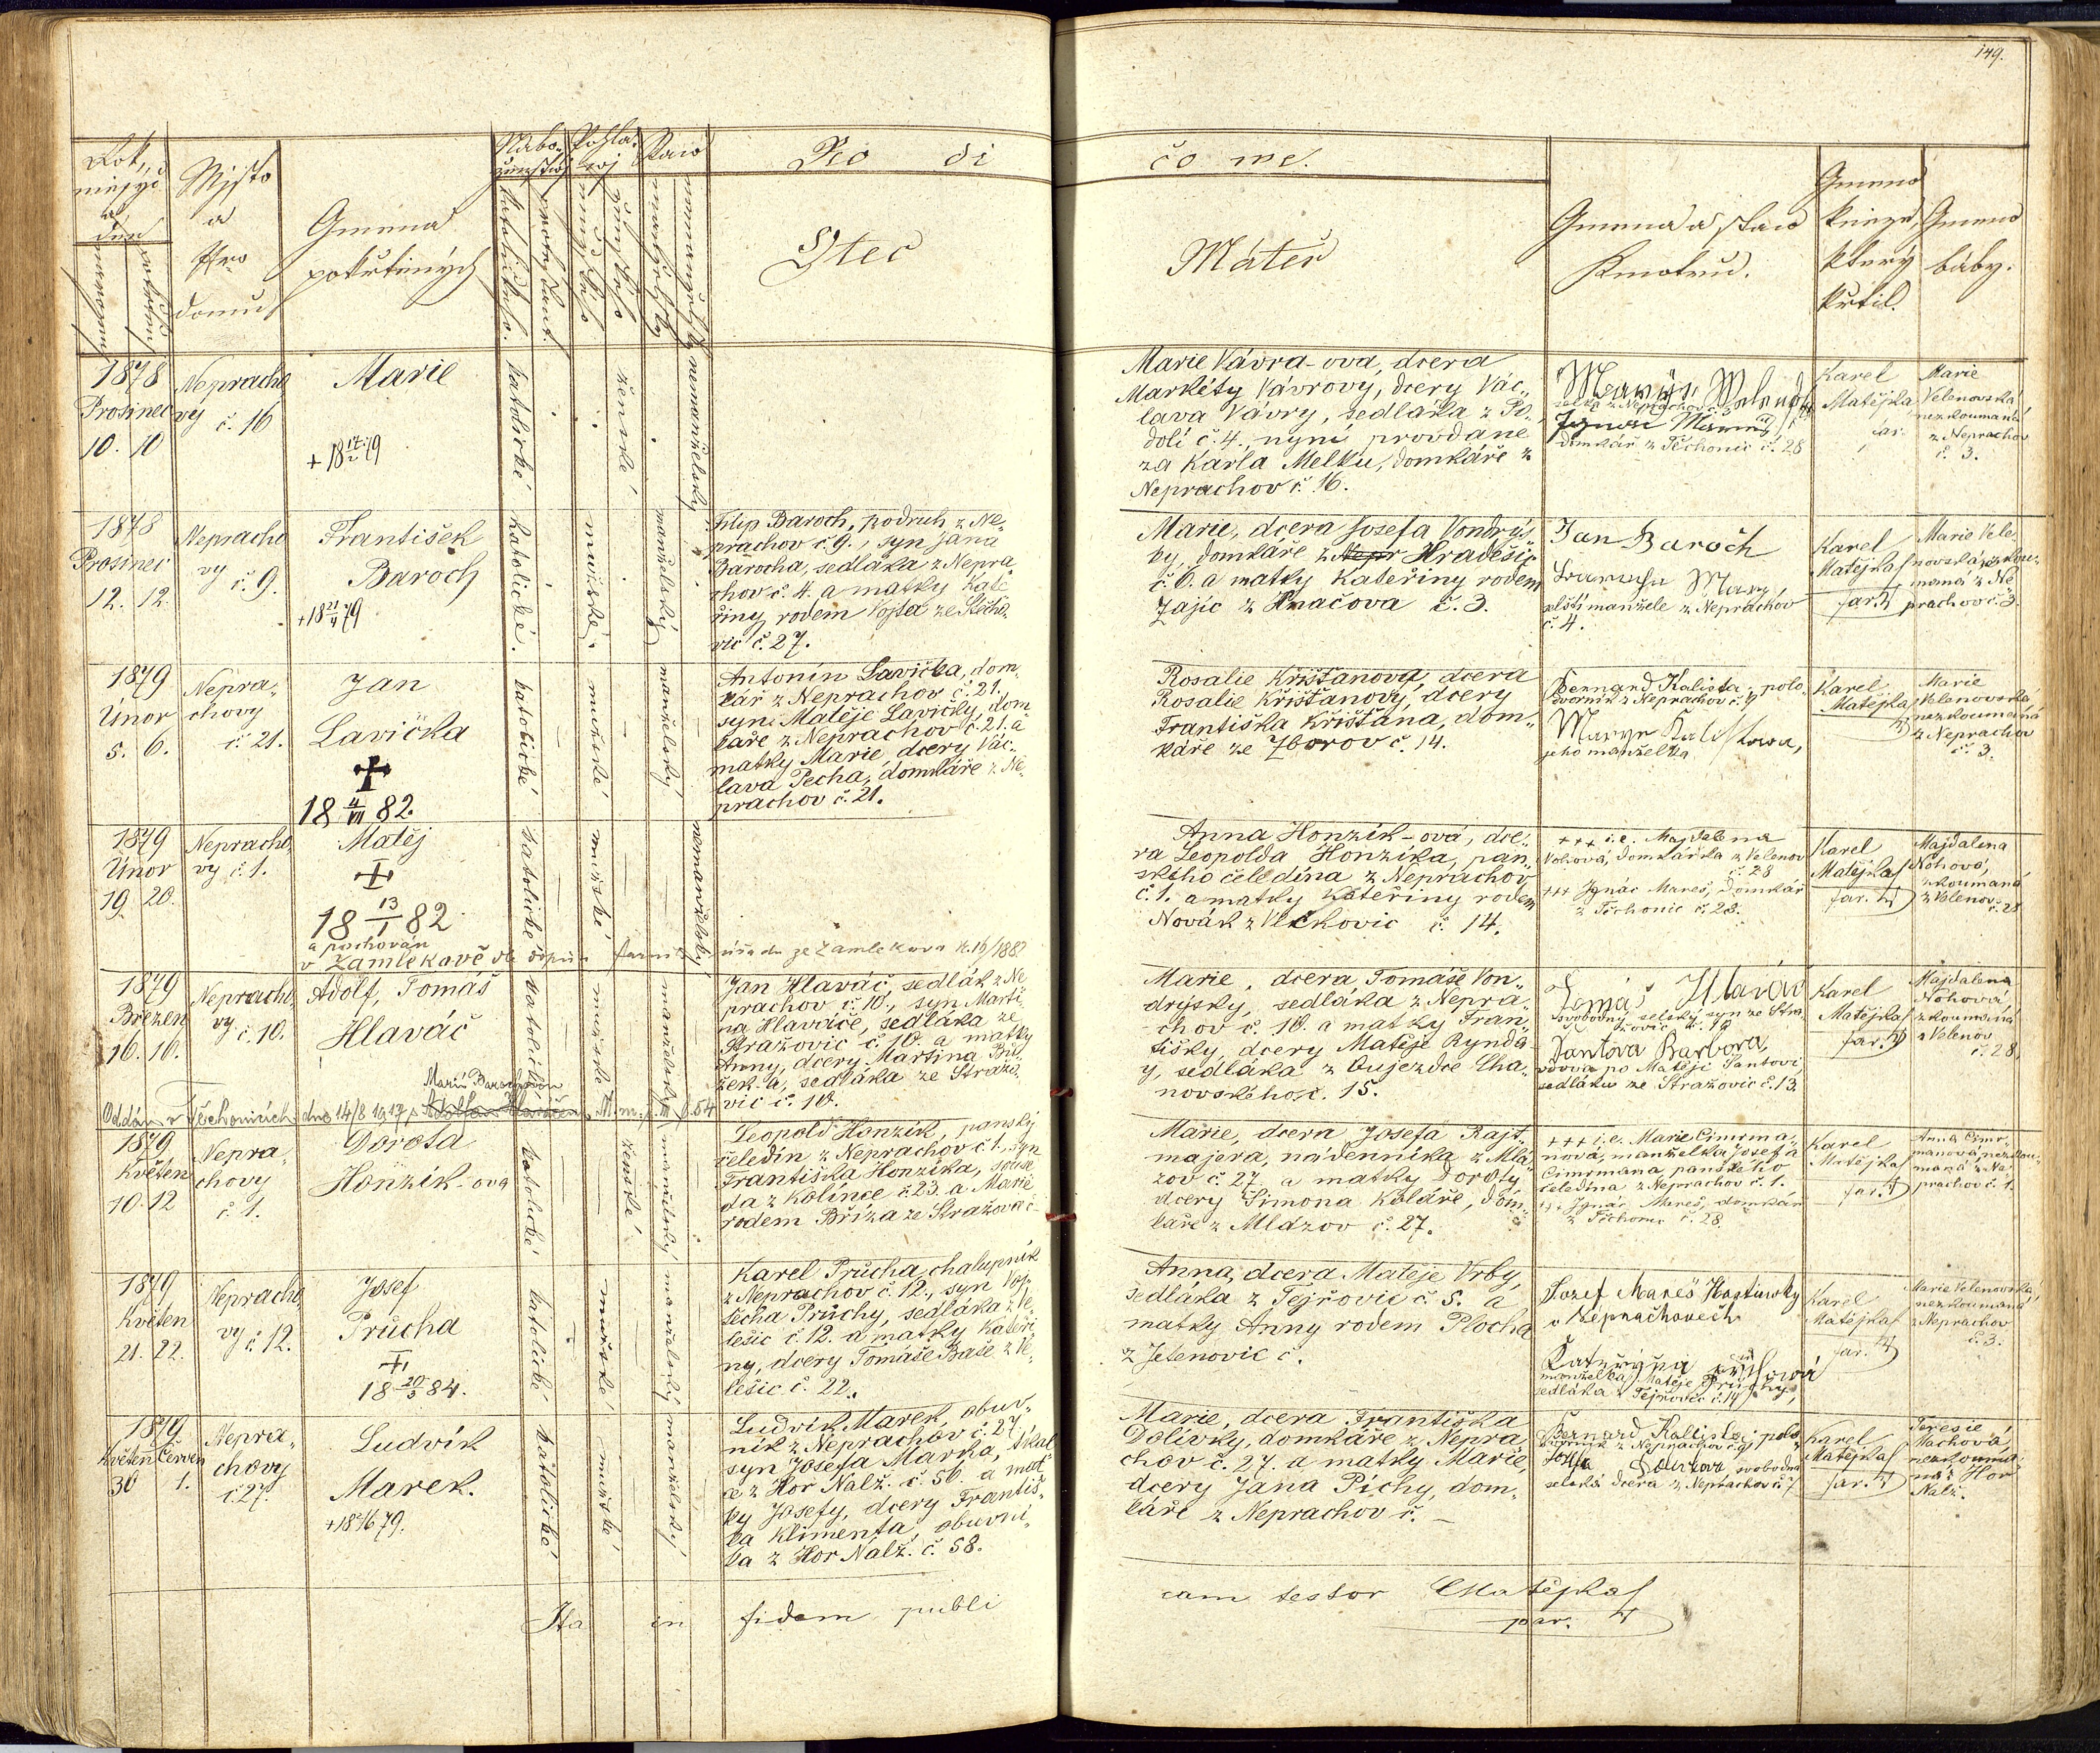 149.
Rok,
měsýc
a
den
narozen
pokřtěn
Mjsto
a
Čjslo
domu
Gmena
pokřtěných
Nábo-
ženstwj
katolické
protestant.
Pohla-
wj
mužské
ženské
Staw
manželský
nemanželský
Ro di čo we.
Otec
Máteř
Gmena a staw
Kmotrů.
Gmeno
kněze,
který
křtil.
Gmeno
báby.
1878
Prosinec
10. 10
Nepracho
vy č. 16
Marie
+ 18 17/2 79
katolické
ženské
nemanželský
Marie Vávra-ova, dcera
Markéty Vávrovy, dcery Vác-
lava Vávry, sedláka z Po-
dolí č. 4. nyní provdané
za Karla Melku, domkáře z
Neprachov č. 16.
z Neprachov
domkář z Těchonic č. 28
Karel
Matějka
far.
Marie
Velenovská
nezkoumaná
z Neprachov
č. 3.
1878
Prosinec
12. 12.
Nepracho
vy č. 9.
František
Baroch
+ 18 21/4 79
katolické.
mužské.
manželský
Filip Baroch, podruh z Ne-
prachov č. 9., syn Jana
Barocha, sedláka z Nepra
chov č. 4. a matky Kate
řiny rodem Vojta ze Stěcho-
vic č. 27.
Marie, dcera Josefa Vondrys-
ky, domkáře z Hradešic
č. 6. a matky Kateřiny rodem
Zajíc z Hnačova č. 3.
Jan Baroch
manželé z Neprachov
č. 4.
Karel
Matějka
far.
Marie Vele-
novská nezkou-
maná z Ne
prachov č. 3.
1879
Únor
5. 6.
Nepra-
chovy
č. 21.
Jan
Lavička
18 4/VII 82.
katolické
mužské
manželský
Antonín Lavička, dom-
kář z Neprachov č. 21.
syn Matěje Lavičky, dom
káře z Neprachov č. 21. a
matky Marie, dcery Vác-
lava Pecha, domkáře z Ne-
prachov č. 21.
Rosalie Křišťanova, dcera
Rosalie Křišťanovy, dcery
Františka Křišťana, dom-
káře ze Zborov č. 14.
Bernard Kalista, polo
dvorník z Neprachov č. 9
Marye Kalistowa,
jeho manželka
Karel
Matějka
Marie
Velenovská
nezkoumaná
z Neprachov
č. 3.
1879
Únor
19. 20.
Nepracho-
vy č. 1.
Matěj
18 13/1 82
a pochován
v Zamlekově dle dopisu farního úřadu ze Zamlekova 16/1882
katolické
mužské
nemanželský
Anna Honzík-ová, dce-
ra Leopolda Honzíka, pan-
ského čeledína z Neprachov
č. 1. a matky Kateřiny rodem
Novák z Vlčkovic č. 14.
+++ i. e. Majdalena
Nohová, domkářka z Velenov
č. 28
+++ Ignác Mareš, domkář
z Těchonic č. 28.
Karel
Matějka
far.
Majdalena
Nohová,
zkoumaná
z Velenov
č. 28
1879
Březen
16. 16.
Nepracho
vy č. 10.
Adolf, Tomáš
Hlaváč
katolické
mužské
manželský
Jan Hlaváč, sedlák z Ne
prachov č. 10., syn Marti-
na Hlaváče, sedláka ze
Stražovic č. 10. a matky
Anny, dcery Martina
sedláka ze Stražo-
vic č. 10.
Marie, dcera Tomáše Von-
drysky, sedláka z Nepra-
chov č. 10. a matky Fran-
tišky, dcery Matěje Rynda
y, sedláka z Oujezdce Cha-
novského č. 15.
Tomáš Hlaváč
svobodný selský syn ze Stra
žovic č. 10
Šantova Barbora,
vdova po Matěji Šantovi
sedláku ze Stražovic č. 13.
Karel
Matějka
far.
Majdalena
Nohová
zkoumaná
z Velenov
č. 28.
Marií Barochovou
Oddán v Těchonicích dne 14/8 1917 s Adolfem Hlaváčem
1879
Květen
10. 12
Nepra-
chovy
č. 1.
Dorota
Honzík-ova
katolické
ženské
manželský
Leopold Honzík, panský
čeledín z Neprachov č. 1., syn
Františka Honzíka, souse
da z Kolince č. 23. a Marie
rodem Bříza ze Stražova č.
Marie, dcera Josefa Rajt-
majera, nádenníka z Mla
zov č. 27. a matky Doroty
dcery Šimona Koláře, dom-
káře z Mlázov č. 27.
+++ i. e. Marie Cimrma-
nová, manželka Josefa
Cimrmana panského
čeledína z Neprachov č. 1.
+++ Ignác Mareš, domkář
z Těchonic č. 28.
Karel
Matějka
far.
Anna Cimr-
manová nezkou-
maná z Ne
prachov č. 1.
1879
Květen
21. 22.
Nepracho-
vy č. 12.
Josef
Průcha
18 20/3 84.
katolické
mužské
manželský
Karel Průcha, chalupník
z Neprachov č. 12., syn Voj-
těcha Průchy, sedláka z Ve
lešic č. 12. a matky Kateři
ny, dcery Tomáše Baše z Ve-
lešic č. 22.
Anna, dcera Matěje Vrby,
sedláka z Tejřovic č. 5. a
matky Anny rodem Plocha
z Jetenovic č.
Jozef Mareš
v Neprachovech
manželka Matěje Průchy,
sedláka z Tejřovic č. 14
Karel
Matějka
far.
Marie Velenovská,
nezkoumaná
z Neprachov
č. 3.
1879
Květen Červen
30 1.
Nepra-
chovy
č. 27.
Ludvík
Marek.
katolické
mužské
manželský
Ludvík Marek, obuv-
ník z Neprachov č. 27
syn Josefa Marka, tkal
ce z Hor Nalž. č. 56. a mat
ky Josefy, dcery Františ-
ka Klimenta, obuvní-
ka z Hor Nalž. č. 58.
Marie, dcera Františka
Dolívky, domkáře z Nepra
chov č. 27. a matky Marie,
dcery Jana Píchy, dom-
káře z Neprachov č. –
Bernard Kalista, polo
dvorník z Neprachov č. 9
svobodná
selská dcera z Neprachov č.
Karel
Matějka
far.
Teresie
Machová,
nezkouma-
ná z Hor
Nalž.
Ita in fidem publi
cam testor Matějka
par.